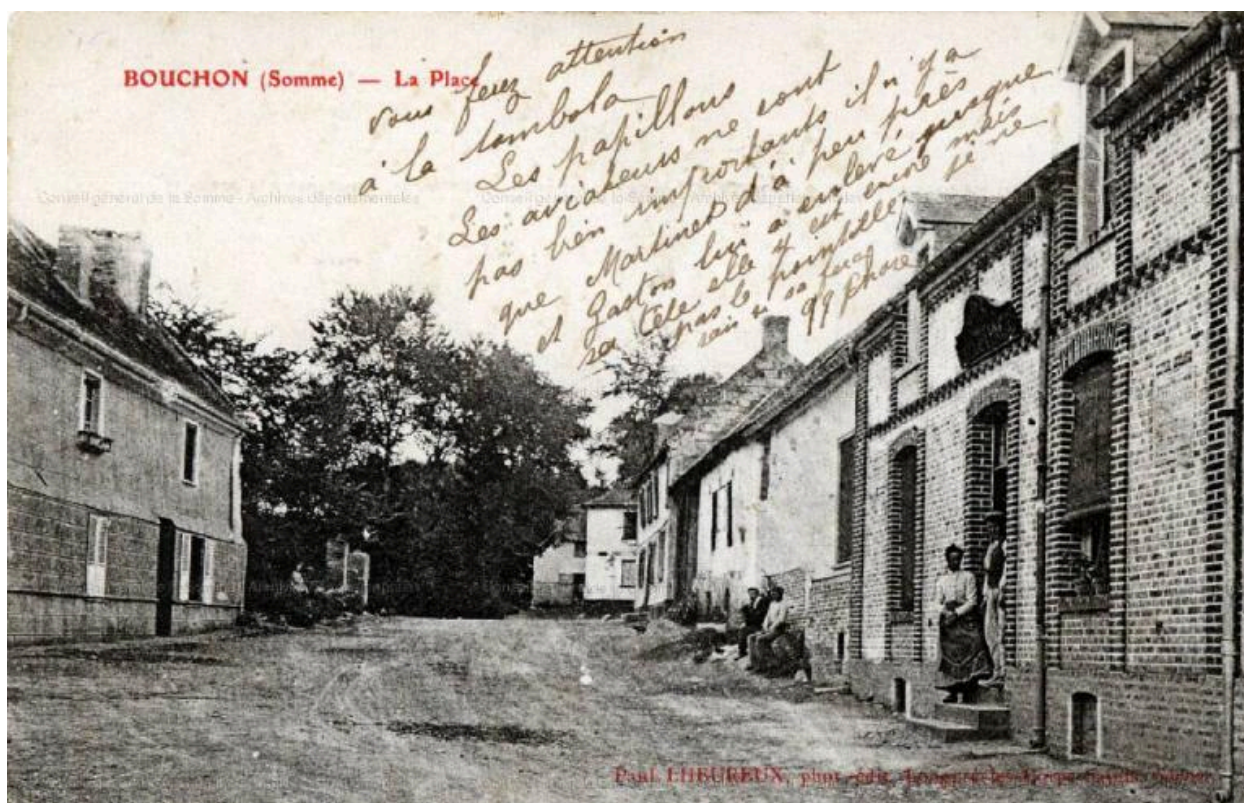 BOUCHON (Somme) — La Place
vous ferez attention
à la tombola
Les papillons
Les aviateurs ne sont
pas bien importants il n'y a
que Martinet d'à peu près
et Gaston lui a enlevé presque
sa tête elle y est encore mais
pas le pointillé je ne
sais si sa fera
Conseil général de la Somme - Archives départementales
Conseil général de la Somme - Archives départementales
Paul LHEUREUX, phot.-édit.